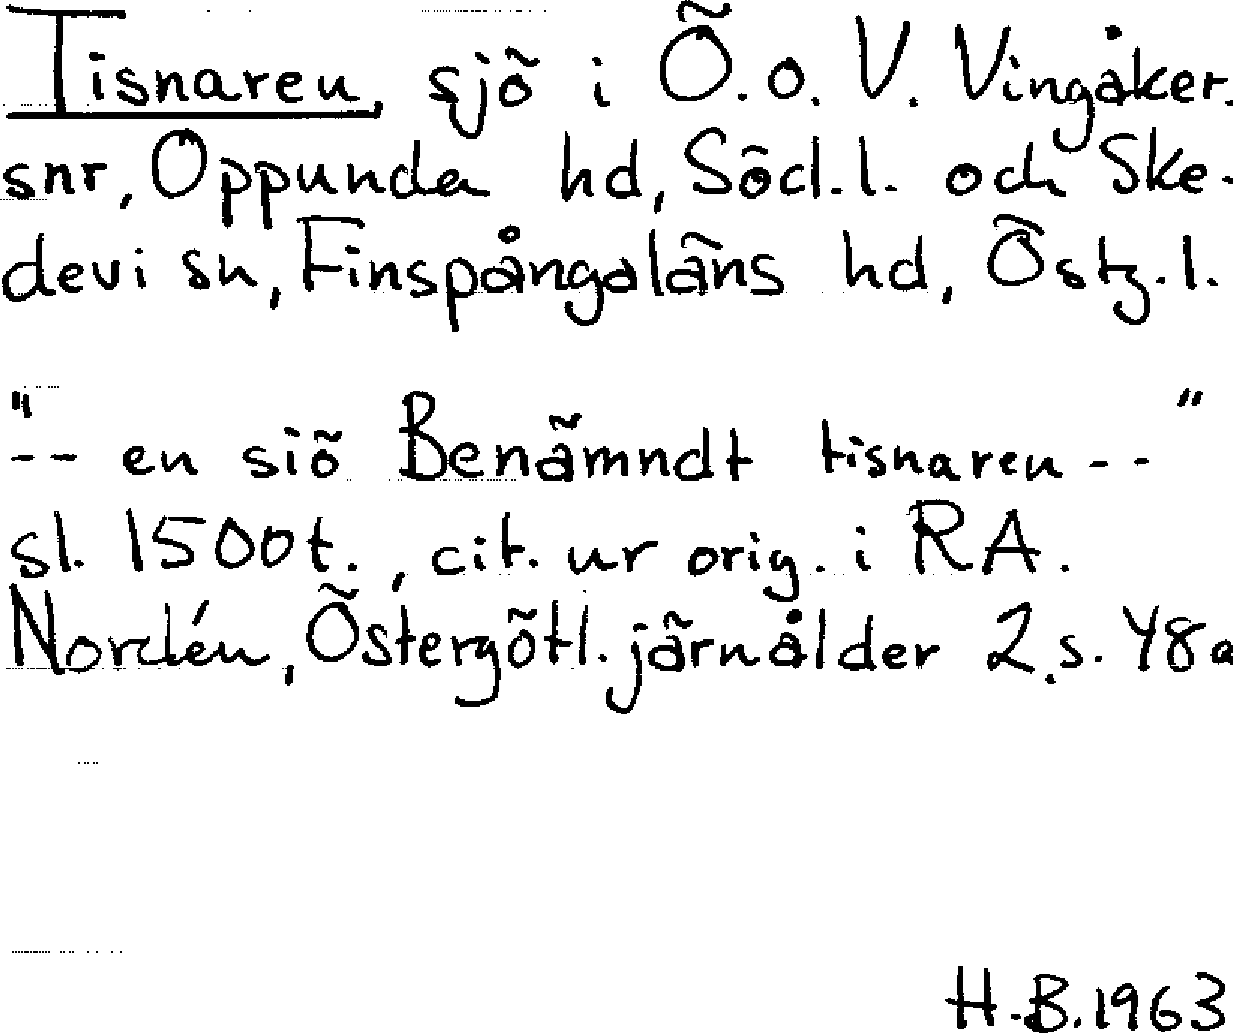 Tisnaren, sjö i Ö. o. V. Vingåker.
snr, Oppunda hd, Söd. l. och Ske-
devi sn, Finspångaläns hd, Östg. l.
"-- en siö Benämndt tisnaren --"
sl. 1500t., cit. ur orig. i RA.
Nordén, Östergötl. järnålder 2, s. 48a
H.B. 1963